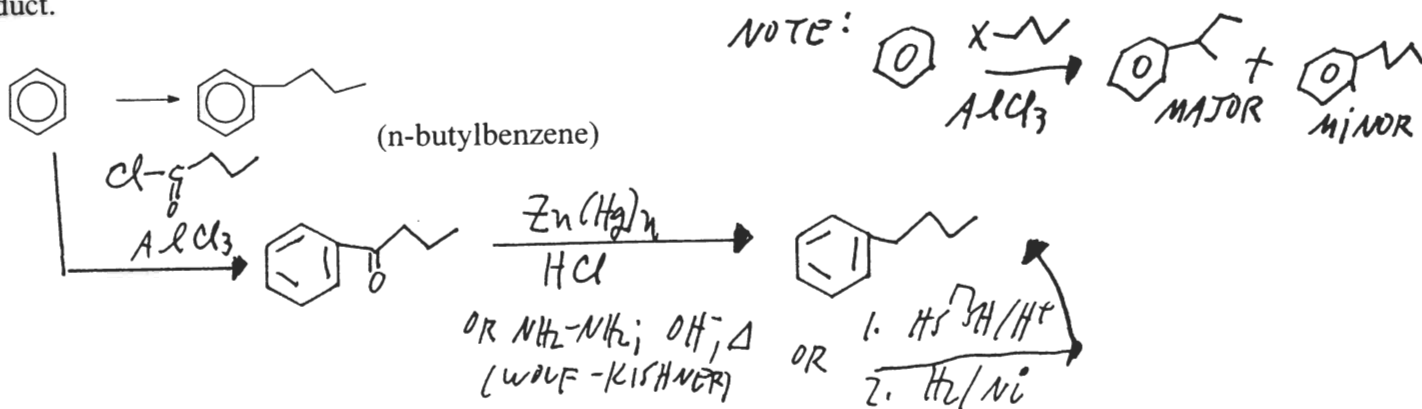 duct.
NOTE:
X
AlCl3
MAJOR + MINOR
(n-butylbenzene)
Cl-C
O
AlCl3
O
Zn(Hg)n
HCl
OR NH2-NH2; OH-, Δ
(WOLF-KISHNER)
OR
1. HS SH/H+
2. H2/Ni